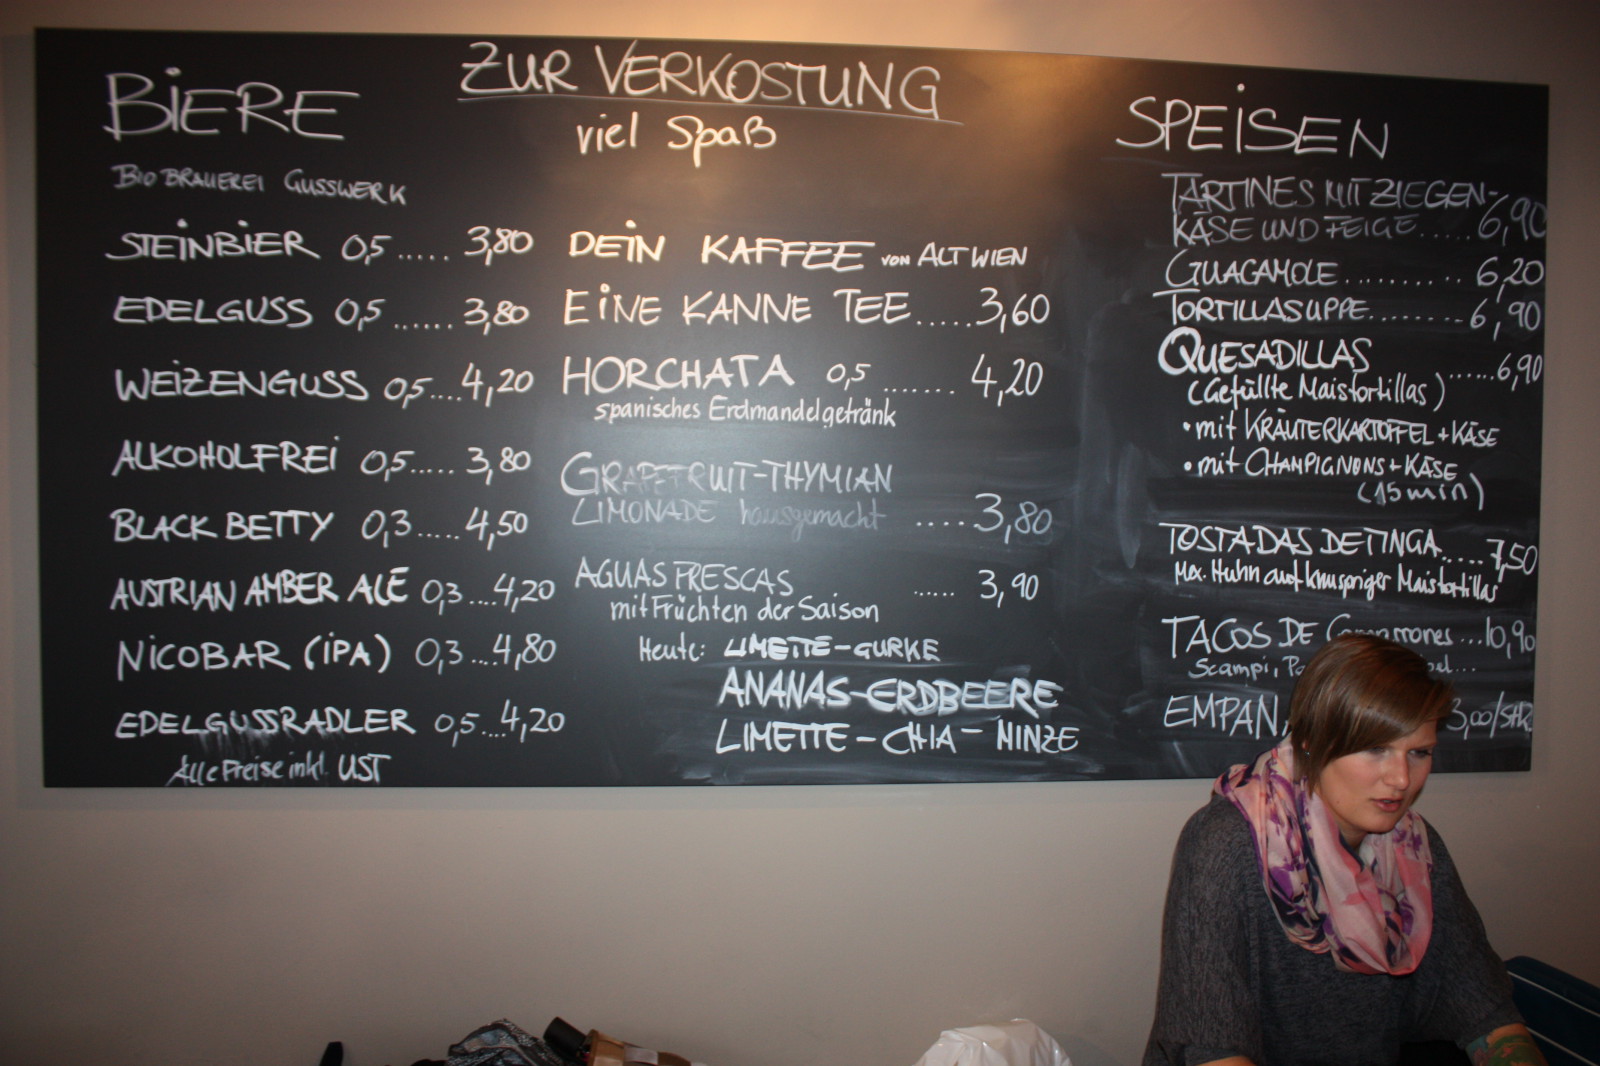 ZUR VERKOSTUNG
viel Spaß
BIERE
BIOBRAUEREI GUSSWERK
STEINBIER 0,5 ..... 3,80
EDELGUSS 0,5 ...... 3,80
WEIZENGUSS 0,5 .... 4,20
ALKOHOLFREI 0,5..... 3,80
BLACK BETTY 0,3 ..... 4,50
AUSTRIAN AMBER ALE 0,3 .... 4,20
NICOBAR (IPA) 0,3 .... 4,80
EDELGUSSRADLER 0,5 ... 4,20
Alle Preise inkl. UST
DEIN KAFFEE VON ALT WIEN
EINE KANNE TEE ..... 3,60
HORCHATA 0,5 ....... 4,20
spanisches Erdmandelgetränk
GRAPEFRUIT-THYMIAN
LIMONADE hausgemacht ..... 3,80
AGUAS FRESCAS ..... 3,90
mit Früchten der Saison
Heute: LIMETTE-GURKE
ANANAS-ERDBEERE
LIMETTE-CHIA-MINZE
SPEISEN
TARTINES MIT ZIEGEN-
KÄSE UND FEIGE ..... 6,90
GUACAMOLE ......... 6,20
TORTILLASUPPE ........ 6,90
QUESADILLAS ...... 6,90
(Gefüllte Maistortillas)
• mit KRÄUTERKARTOFFEL + KÄSE
• mit CHAMPIGNONS + KÄSE
(15min)
TOSTADAS DE TINGA ..... 7,50
Mex. Huhn auf knuspriger Maistortillas
TACOS DE ... 10,90
Scampi,
EMPAN 3,00/Stk.